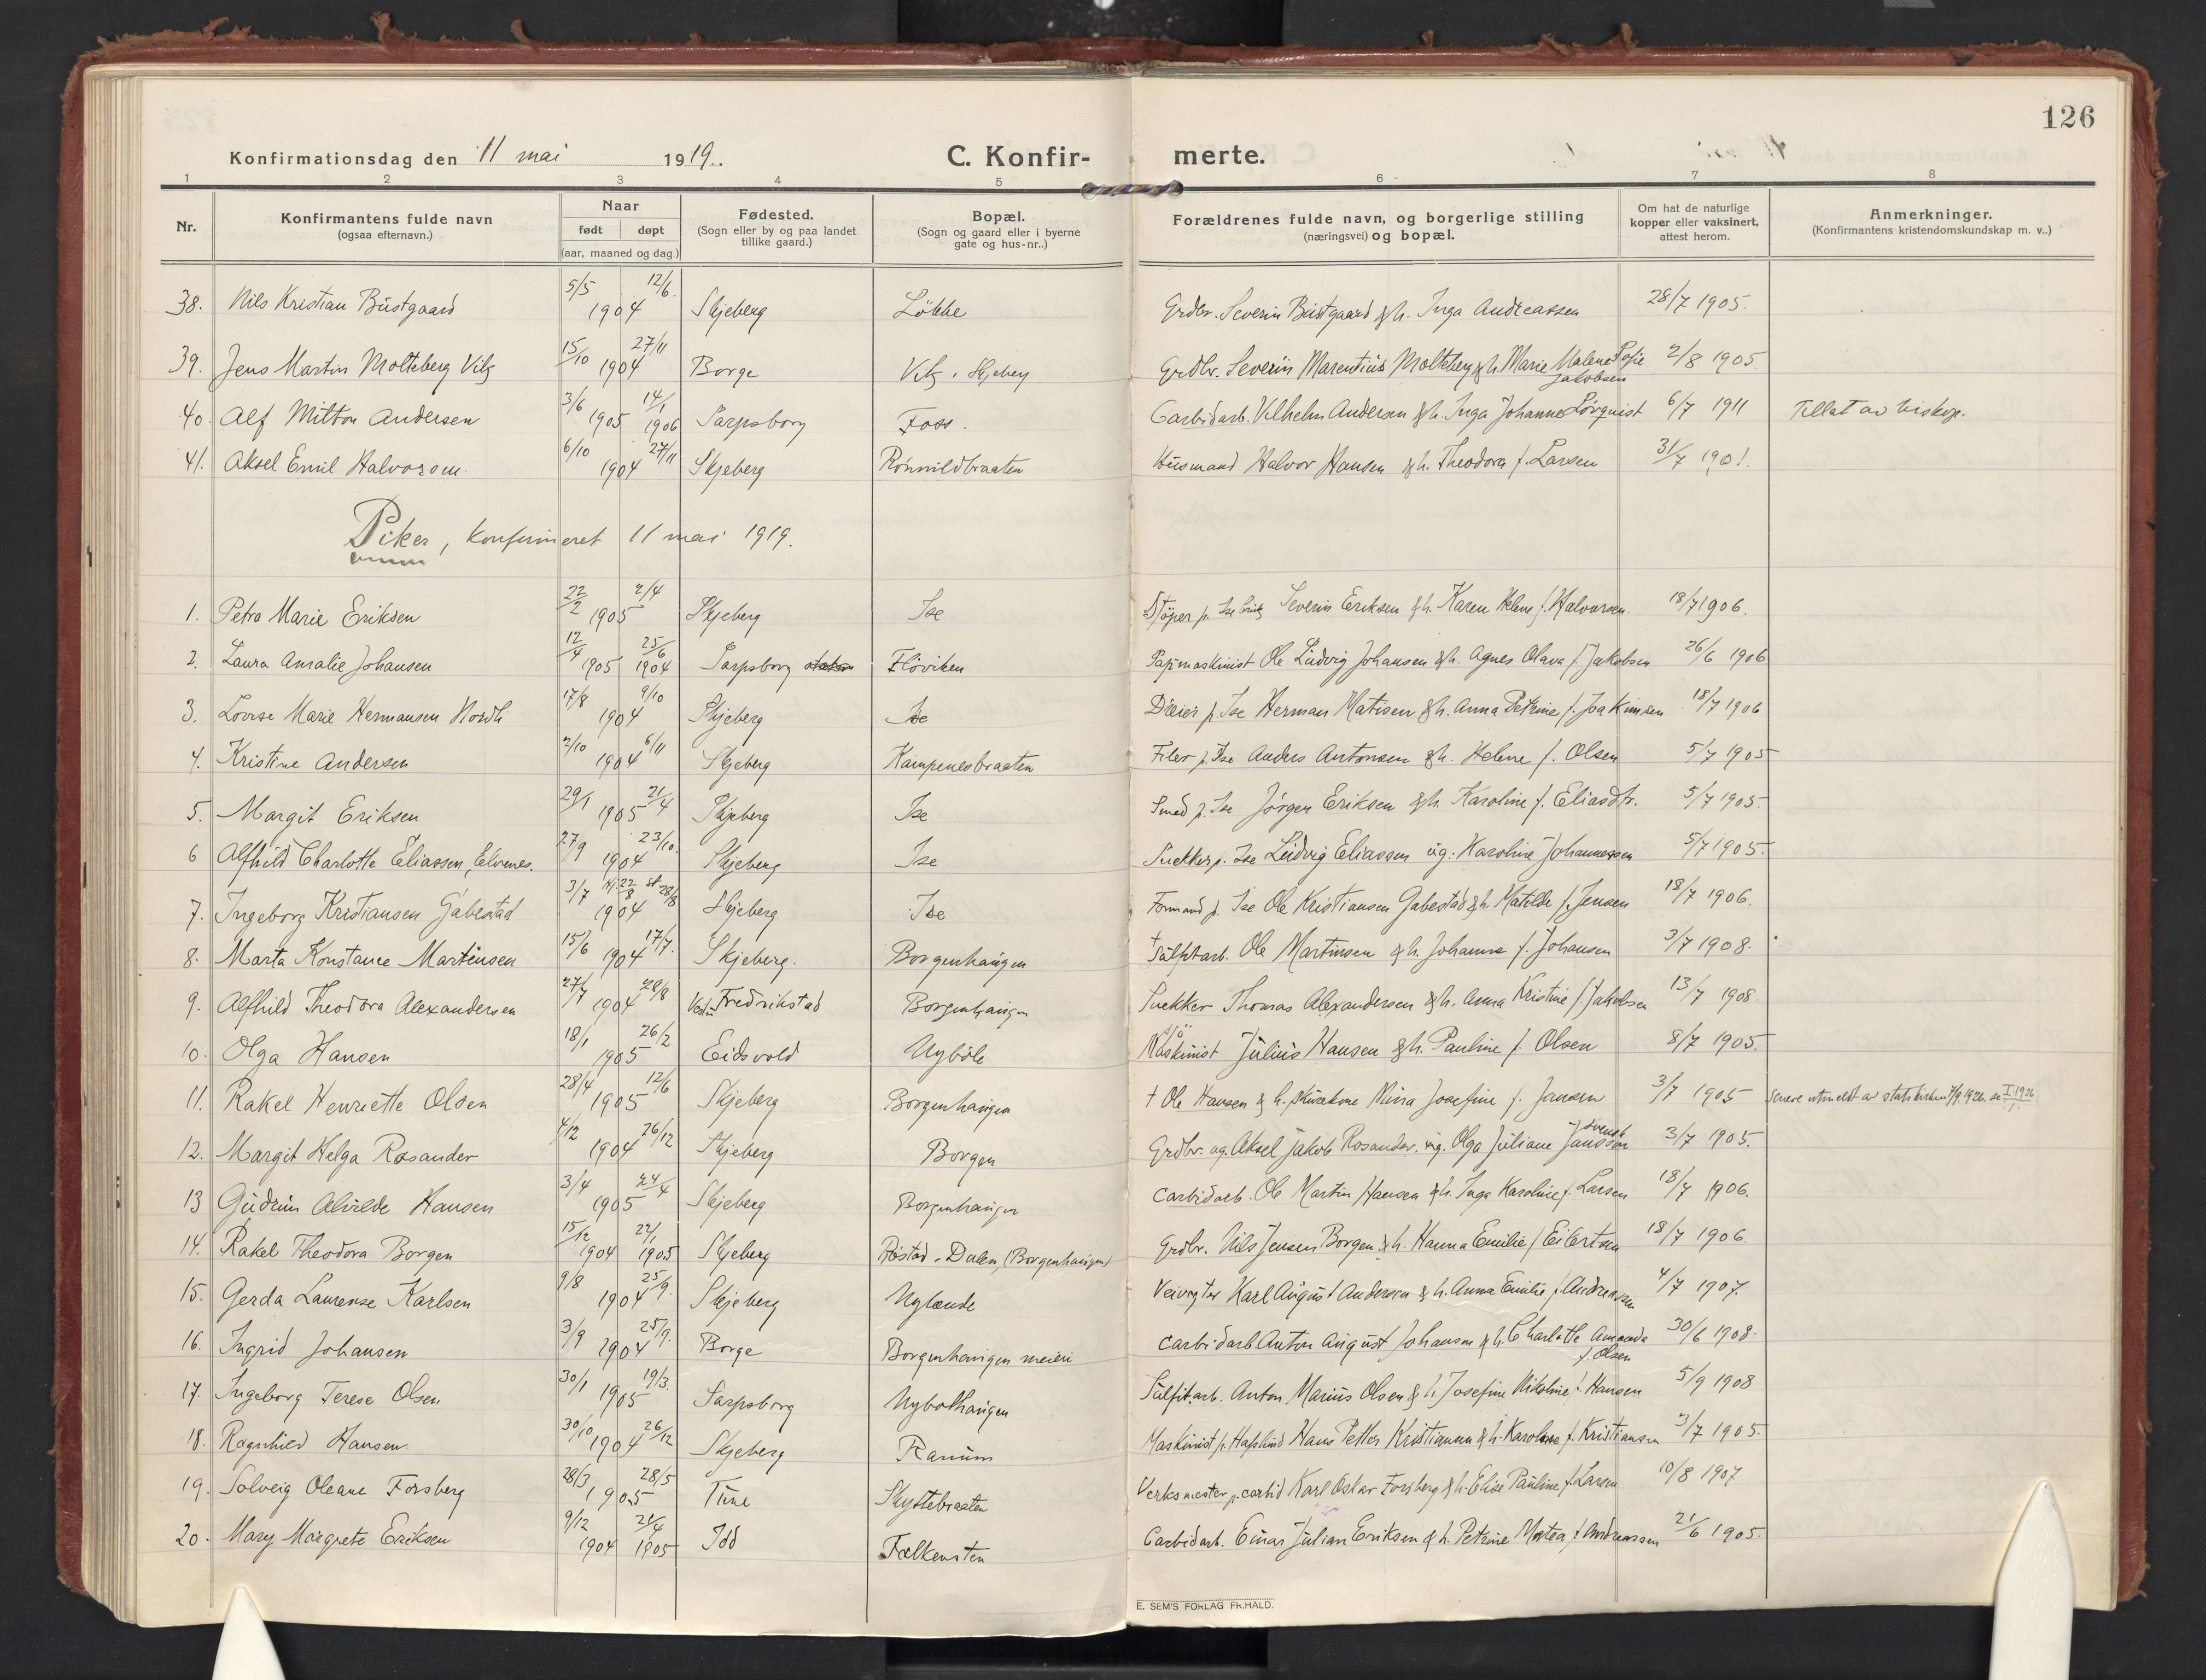 126
Konfirmationsdag den 11 mai 1919.
C. Konfir-
merte.
1 2 3 4 5 6 7 8
Nr.
Konfirmantens fulde navn
(ogsaa efternavn.)
Naar
født døpt
(aar, maaned og dag.)
Fødested.
(Sogn eller by og paa landet
tillike gaard.)
Bopæl.
(Sogn og gaard eller i byerne
gate og hus-nr..)
Forældrenes fulde navn, og borgerlige stilling
(næringsvei) og bopæl.
Om hat de naturlige
kopper eller vaksinert,
attest herom.
Anmerkninger.
(Konfirmantens kristendomskundskap m. v..)
38. Nils Kristian Bustgaard 5/5 12/6 1904 Skjeberg Løkke Grdbr. Severin Bustgaard & h. Inga Andreassen 28/7 1905.
39. Jens Martin Molteberg Vik 15/10 27/11 1904 Borge Vik. Skjeberg Grdbr. Severin Marentius Molteberg & h. Marie Malene Sofie Jakobsen 2/8 1905.
40. Alf Milton Andersen 3/6 1905 14/1 1906 Sarpsborg Foss. Carbidarb. Vilhelm Andersen & h. Inga Johanne Lövquist 6/7 1911 Tillat av biskop.
41. Aksel Emil Halvorsen. 6/10 27/11 1904 Skjeberg Rönnildbraaten Husmand Halvor Hansen & h. Theodora f. Larsen 31/7 1901.
Piker, konfirmeret 11 mai 1919.
1. Petra Marie Eriksen 22/2 2/4 1905 Skjeberg Ise Støper p. Ise bruk Severin Eriksen & h. Karen Helene f. Halvorsen. 18/7 1906.
2. Laura Amalie Johansen 12/4 1905 25/6 1904 Sarpsborg Flöviken Papmaskinist Ole Ludvig Johansen & h. Agnes Olava f. Jakobsen 26/6 1906
3. Lovise Marie Hermansen Nordli 17/8 9/10 1904 Skjeberg Ise Dreier p. Ise Herman Matisen & h. Anna Petrine f. Joakimsen 18/7 1906
4. Kristine Andersen 2/10 6/11 1904 Skjeberg Kampenesbraaten Filer p. Ise Anders Antonsen & h. Helene f. Olsen 5/7 1905
5. Margit Eriksen 29/1 21/4 1905 Skjeberg Ise Smed p. Ise Jørgen Eriksen & h. Karoline f. Eliasdtr. 5/7 1905.
6 Alfhild Charlotte Eliassen, Elvenes. 27/9 23/10. 1904 Skjeberg Ise Snekker p. Ise Ludvig Eliassen ug: Karoline Johannessen 5/7 1905.
7. Ingeborg Kristiansen Gabestad 3/7 22/8 st 28/8 1904 Skjeberg Ise Formand p. Ise Ole Kristiansen Gabestad & h. Matilde f. Jensen 18/7 1906.
8. Marta Konstance Martinsen 15/6 17/7. 1904 Skjeberg. Borgenhaugen † Sulfitarb. Ole Martinsen & h. Johanne f. Johansen 3/7 1908.
9. Alfhild Theodora Alexandersen 27/7 28/8 1904 Vestre Fredrikstad Borgenhaugen Snekker Thomas Alexandersen & h. Anna Kristine f. Jakobsen 13/7 1908.
10. Olga Hansen 18/1 26/2 1905 Eidsvold Nyböle Maskinist Julius Hansen & h. Pauline f. Olsen 8/7 1905.
11. Rakel Henriette Olsen 28/4 12/6 1905 Skjeberg Borgenhaugen † Ole Hansen & h. skurekone Mina Josefine f. Jansen 3/7 1905 Senere utmeldt av statskirken 7/9 1926. se I 1926
12. Margit Helga Rosander 4/12 26/12 1904 Skjeberg Borgen Grdbr. ug. Aksel Jakob Rosander. ug. Olga Juliane Jansson svensk 3/7 1905.
13 Gudrun Alvilde Hansen 3/4 24/4 1905 Skjeberg Borgenhaugen Carbidarb. Ole Martin Hansen & h. Inga Karoline f. Larsen 18/7 1906.
14. Rakel Theodora Borgen 15/12 1904 22/1 1905 Skjeberg Röstad-Dalen, (Borgenhaugen) Grdbr. Nils Jensen Borgen & h. Hanna Emilie f. Eilertsen 18/7 1906.
15. Gerda Laurense Karlsen 9/8 25/9. 1904 Skjeberg Nylænde Veivogter Karl August Andersen & h. Anna Emilie f. Andreassen 4/7 1907.
16. Ingrid Johansen 3/9 25/9. 1904 Borge Borgenhaugen meieri Carbidarb Anton August Johansen & h. Charlotte Amanda f. Olsen 30/6 1908.
17. Ingeborg Terese Olsen 30/1 19/3. 1905 Sarpsborg Nybolhaugen Sulfitarb. Anton Marius Olsen & h. Josefine Nikoline f. Hansen 5/9 1908
18. Ragnhild Hansen. 30/10 26/12 1904 Skjeberg Ranum Maskinist p. Hafslund Hans Petter Kristiansen & h. Karoline f. Kristiansen 3/7 1905.
19. Solveig Oleane Forsberg 28/3 28/5 1905 Tune Skyttebraaten Verksmester p. carbid Karl Oskar Forsberg & h. Elise Pauline f. Larsen 10/8 1907
20. Mary Margrete Eriksen 9/12 1904 21/4 1905 Idd Falkensten Carbidarb. Einar Julian Eriksen & h. Petrine Matea f. Andreassen 21/6 1905.
E. SEM'S FORLAG FR.HALD.